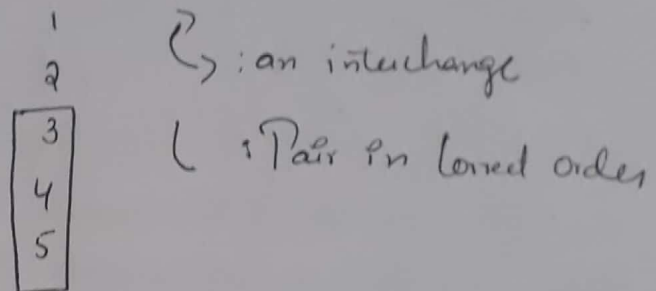 1
2
3
4
5
: an interchange
: Pair in correct order